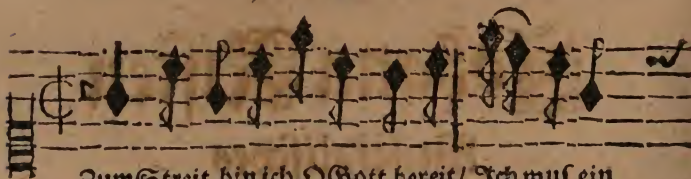 Zum Streit bin ich O Gott bereit/ Ich muß ein